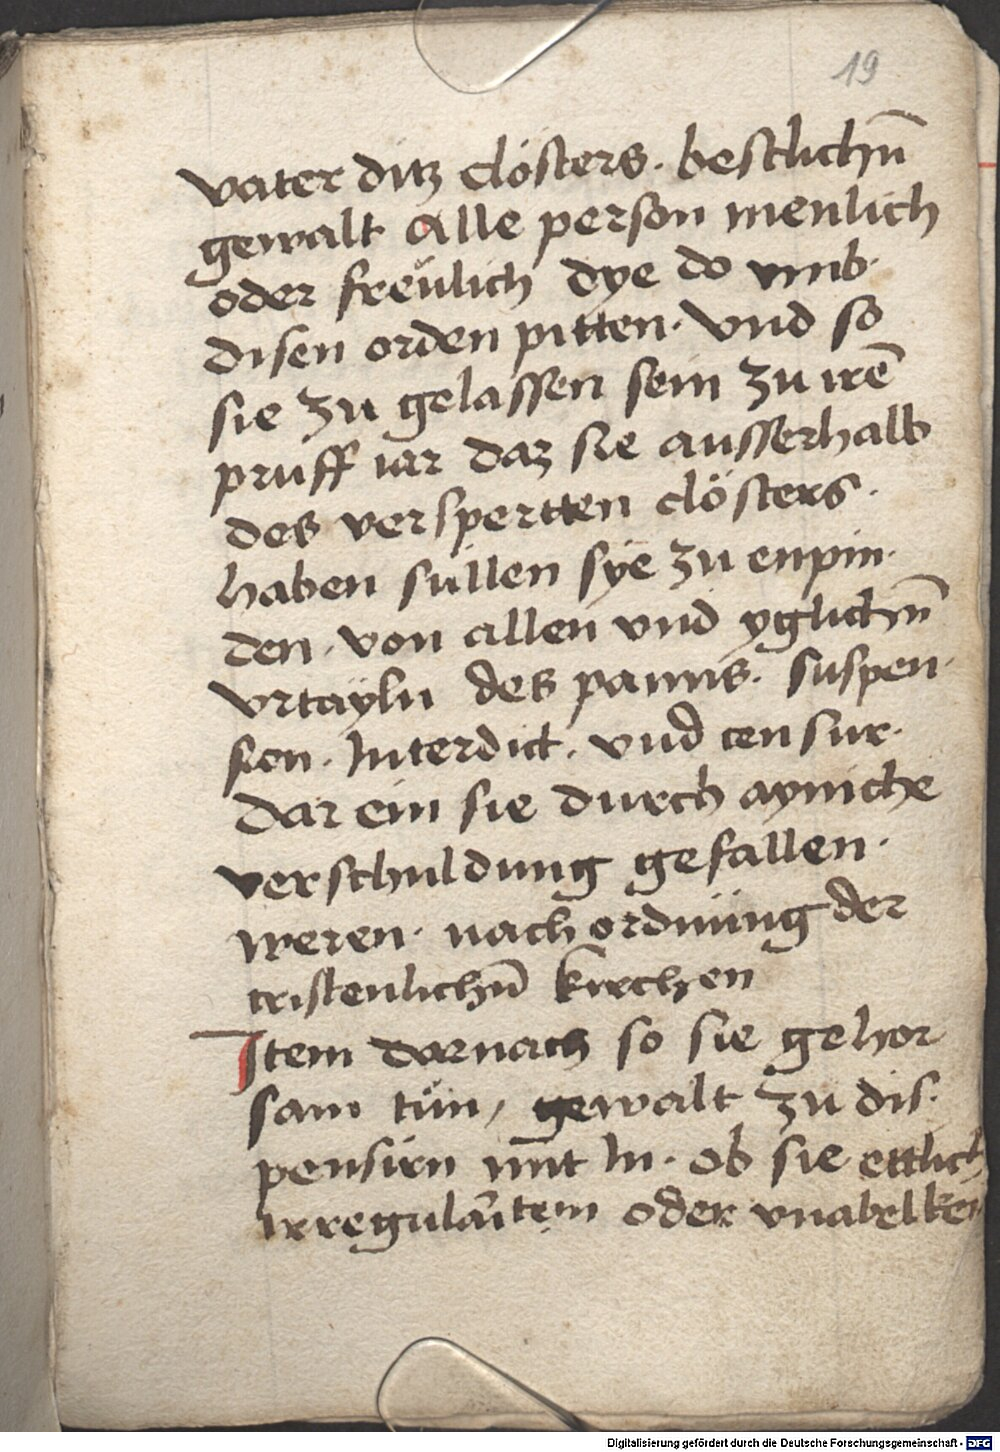 19
vater ditz clösters. bestlichn̄
gewalt Alle person menlich
oder freülich dye do vmb.
disen orden pitten. vnd so
sie zu gelassen sein zu irē
pruff iar daz sie ausserhalb
des verspertten clösters.
haben süllen sye zu enpin.
den. von allen vnd yglichn̄
vrtayln des panns. suspen.
sion. Interdict. vnd censur.
dar ein sie durch ayniche
verschuldung gefallen.
weren. nach ordnüng der
cristenlichn̄ kirchen
Item darnach so sie gehor
sam tün, gewalt zu dis.
pensirn mit In. ob sie ettlich
irregularitem oder vnabelkei
Digitalisierung gefördert durch die Deutsche Forschungsgemeinschaft - DFG